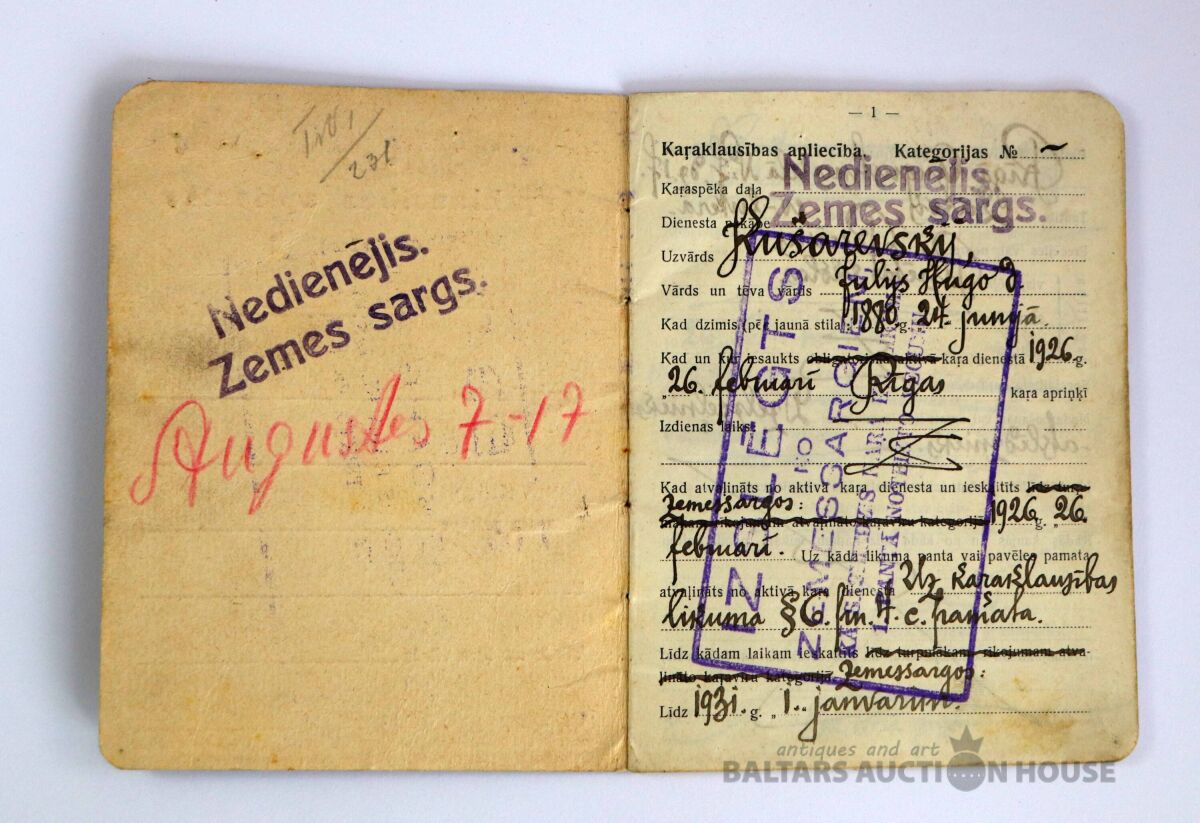 231
Nedienējis.
Zemes sargs.
Augustes 7-17
— 1 —
Kaŗaklausības apliecība. Kategorijas № ~
Karaspēka daļa
Nedienējis.
Dienesta pakāpe
Zemes sargs.
Uzvārds Kušarevskij,
Vārds un tēva vārds Julijs Hugo d.
Kad dzimis (pēc jaunā stila) 1880 g. 24. junijā.
Kad un kur iesaukts obligatoriskā aktīvā kaŗa dienestā 1926 g.
„26. februarī Rīgas kaŗa apriņķī
Izdienas laiks:
Kad atvaļināts no aktīvā kaŗa dienesta un ieskaitīts līdz turp-
zemessargos:
mākam rīkojumam atvaļināto kaŗavīru kategorijā 1926 g. „26.
februarī. Uz kāda likuma panta vai pavēles pamata
atvaļināts no aktīvā kaŗa dienesta Uz karaklausības
likuma §6. lin. 4. c. pamata.
Līdz kādam laikam ieskaitīts līdz turpmākam rīkojumam atva-
ļināto kaŗavīru kategorijā zemessargos:
Līdz 1931. g. „1. janvarim.
IZSLĒGTS
NO
ZEMESSARGIEM
antiques and art
BALTARS AUCTION HOUSE